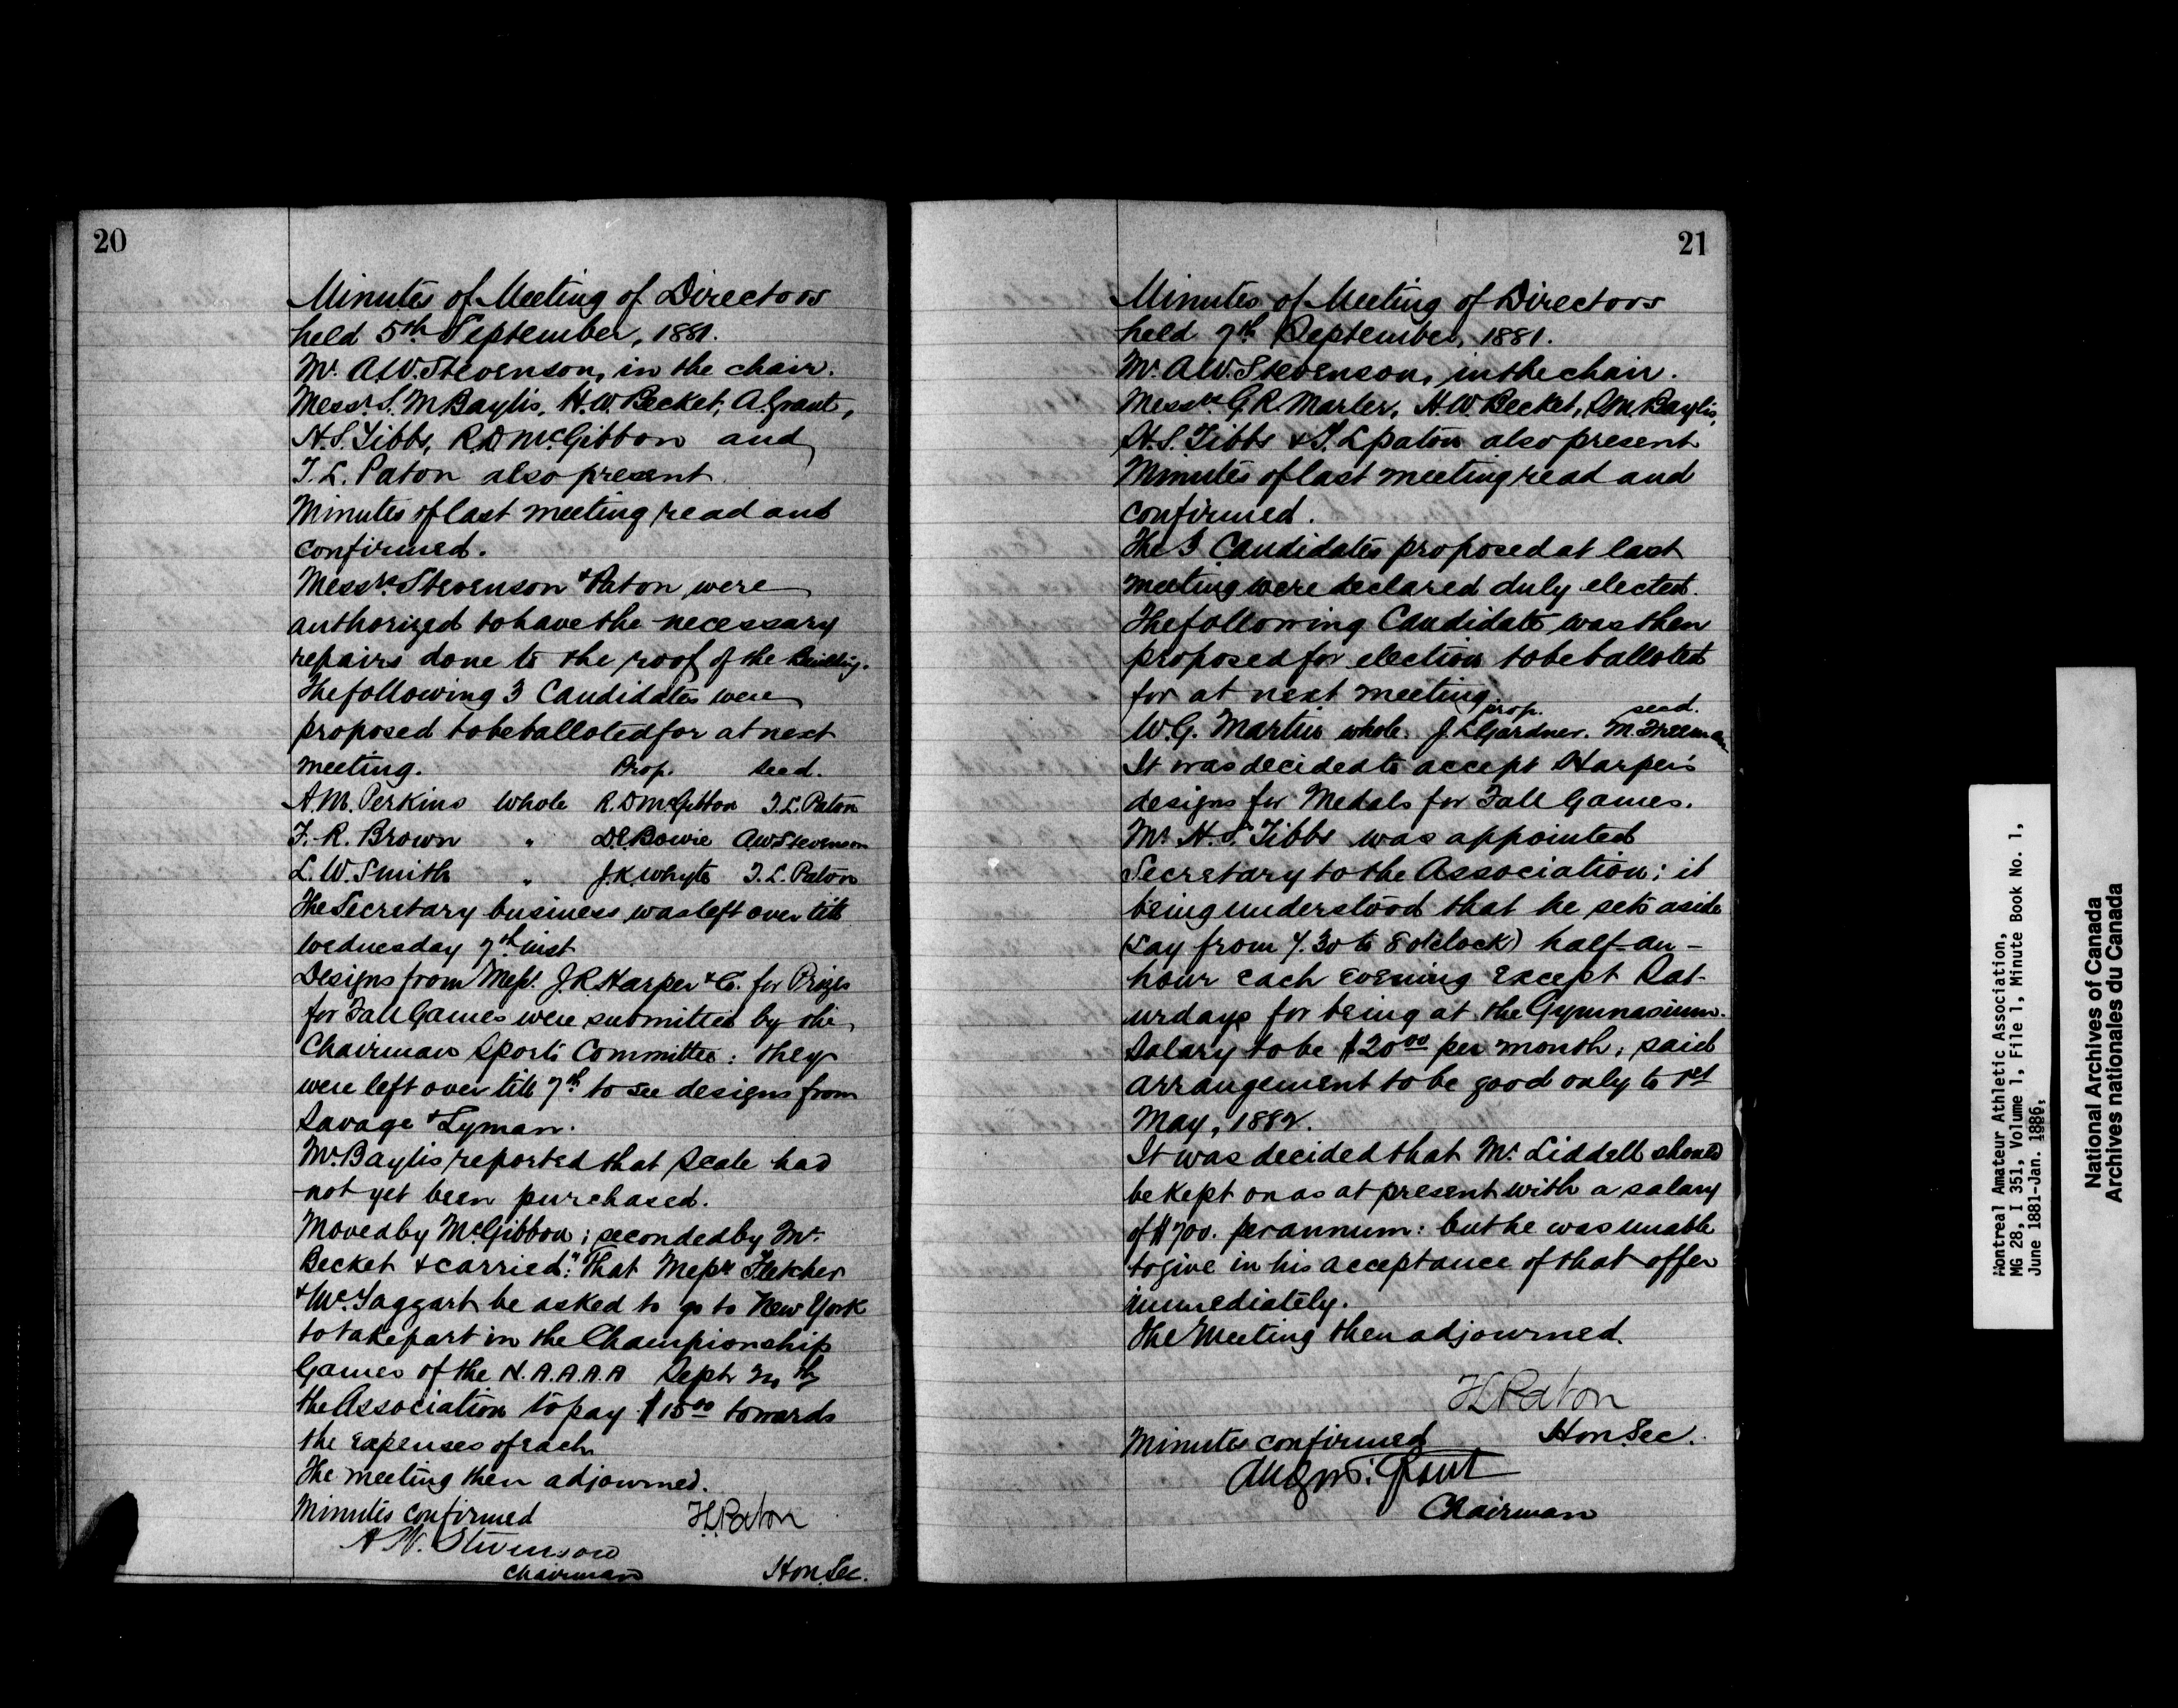 20
Minutes of Meeting of Directors
held 5th September, 1881.
Mr. A.W. Stevenson, in the chair.
Messrs. S. M Baylis, H.W. Becket, A. Grant,
H.S. Tibbs, R.D McGibbon and
T.L. Paton also present.
Minutes of last meeting read and
confirmed.
Messrs. Stevenson & Paton were
authorized to have the necessary
repairs done to the roof of the Building.
The following 3 Candidates were
proposed to be balloted for at next
meeting. Prop. Secd.
A.M. Perkins Whole R.D McGibbon T.L. Paton
F.R. Brown " D.E Bowie A.W Stevenson
L.W. Smith " J.K. Whyte T.L. Paton
The Secretary business was left over till
Wednesday 7th inst
Designs from Messr. J.R. Harper & Co. for Prizes
for Fall Games were submitted by the
Chairman Sports Committee: they
were left over till 7th to see designs from
Savage & Lyman.
Mr. Baylis reported that Scale had
not yet been purchased.
Moved by McGibbon; seconded by Mr.
Becket & carried: "That Messrs Fletcher
& McTaggart be asked to go to New York
to take part in the Championship
Games of the N.A.A.A.A Sept
the Association to pay $15 00 towards
the expenses of each
The meeting then adjourned.
Minutes confirmed T.L. Paton
A W. Stevenson
Chairman Hon. Sec.
21
Minutes of Meeting of Directors
held 7th September, 1881.
Mr. A.W. Stevenson, in the chair.
Messrs. G.R. Marler, H.W Becket, S.M Baylis,
H.S. Tibbs & T.L paton also present
Minutes of last meeting read and
confirmed.
The 3 Candidates proposed at last
meeting were declared duly elected.
The following Candidate was then
proposed for election to be balloted
for at next meeting.
prop. secd.
W.G. Martin whole. J.L Gardner. M. Freeman
It was decided to accept Harper's
designs for Medals for Fall Games.
Mr. H.S. Tibbs was appointed
Secretary to the Association; it
being understood that he sets aside
(say from 7.30 to 8 o'clock) half-an-
hour each evening except Sat-
urdays for being at the Gymnasium.
Salary to be $20 00 per month, said
arrangement to be good only to 1st
May, 1882.
It was decided that Mr. Liddell should
be kept on as at present with a salary
of $700. per annum: but he was unable
to give in his acceptance of that offer
immediately.
The Meeting then adjourned.
T.L. Paton
Minutes confirmed Hon. Sec.
Grant
Chairman
Montreal Amateur Athletic Association,
MG 28, I 351, Volume 1, File 1, Minute Book No. 1,
June 1881-Jan. 1886,
National Archives of Canada
Archives nationales du Canada